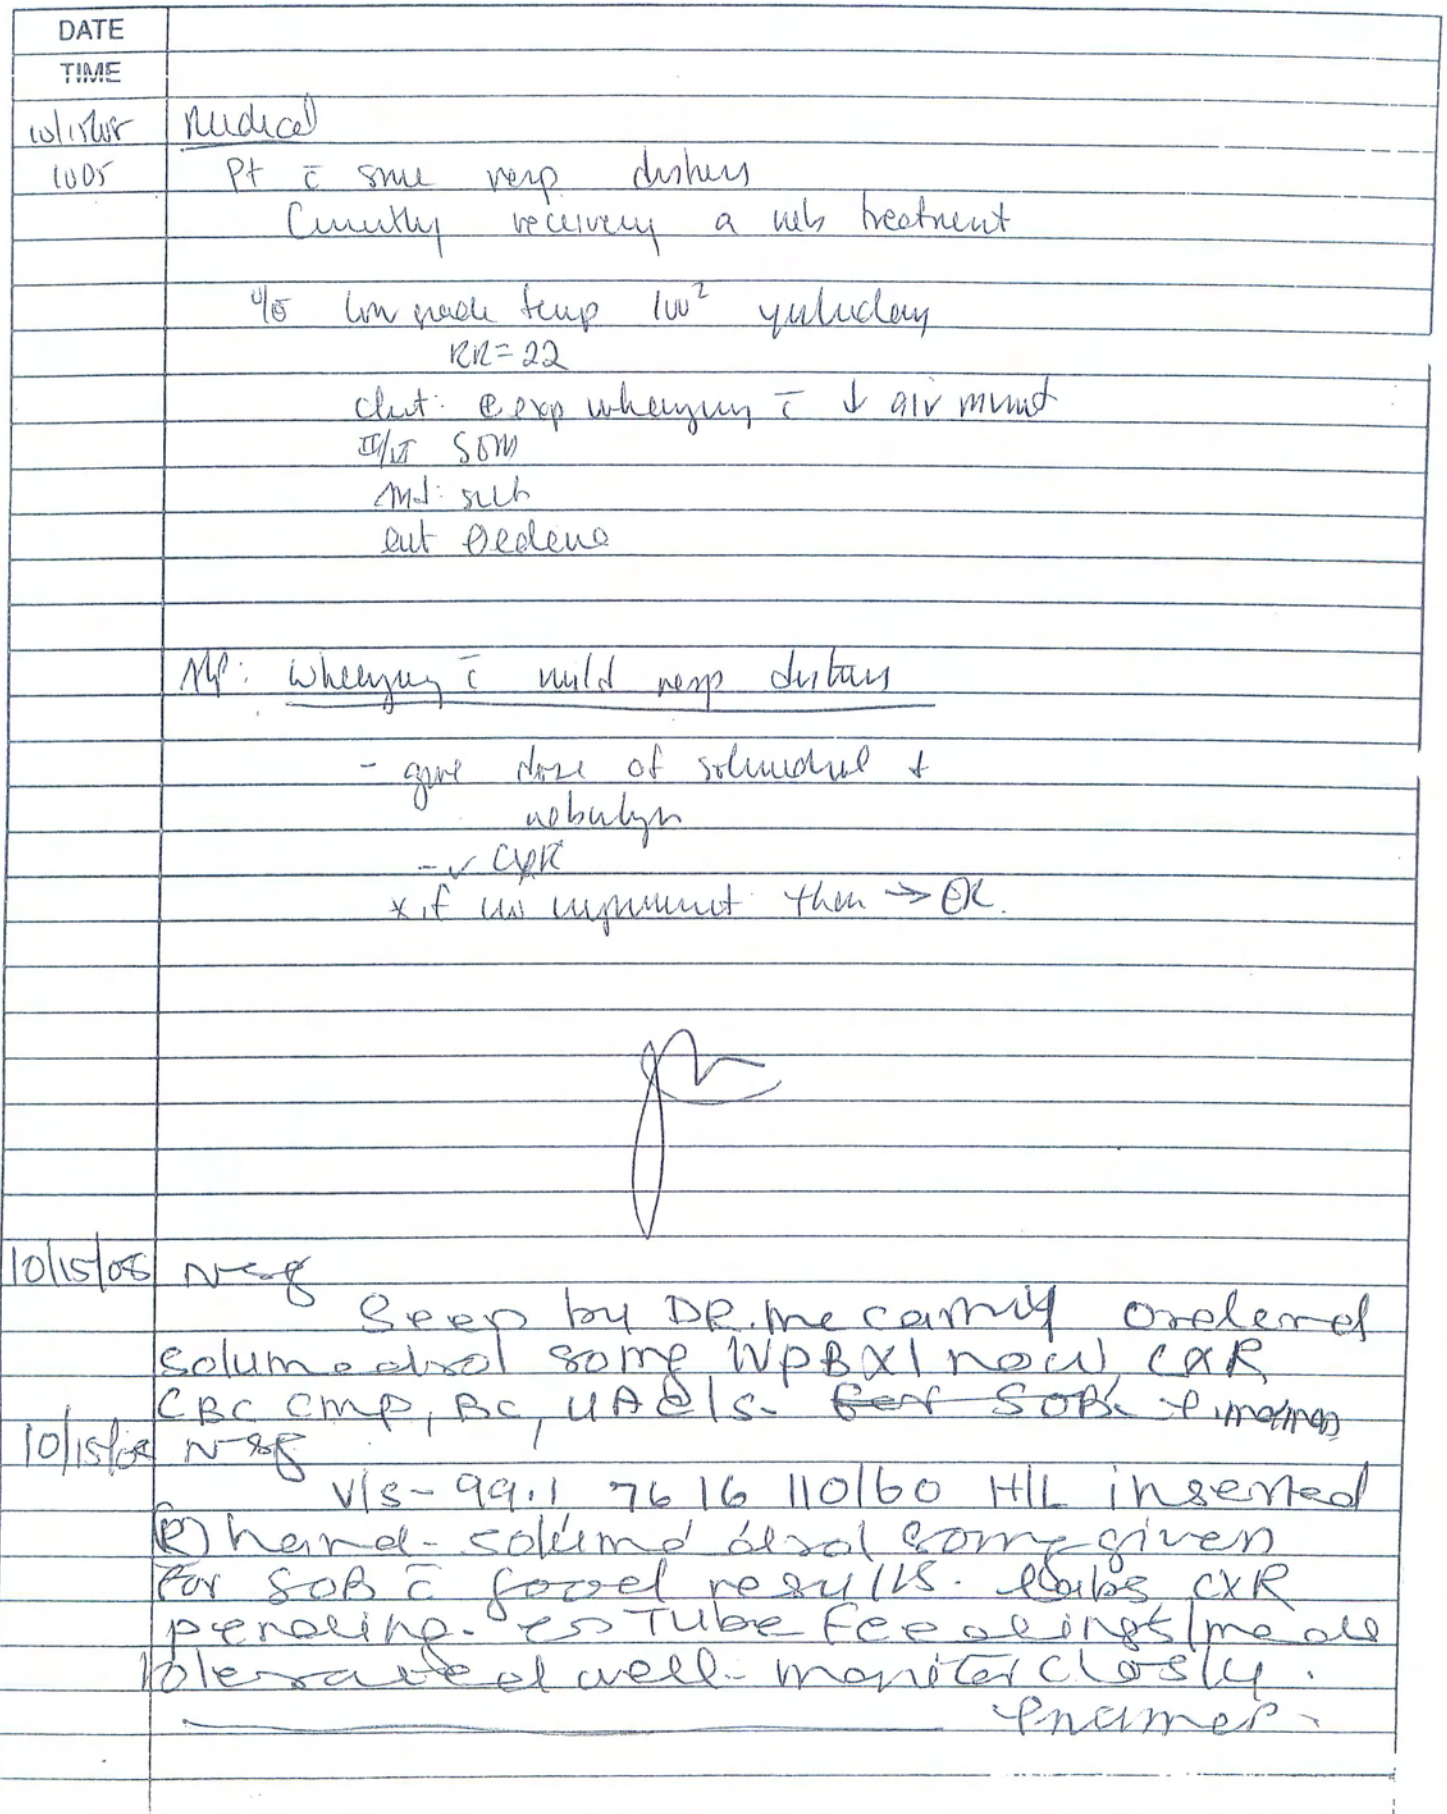 DATE
TIME
10/15/08 Medical
1005 Pt c̄ some resp distress
Currently receiving a neb treatment
low grade temp 100² yesterday
RR=22
chest: ⊕ exp wheezing c̄ ↓ air mvmt
II/VI SEM
Abd: soft
ext ⊖edema
A/P: Wheezing c̄ mild resp distress
- gave dose of solumedrol +
nebulizer
- ✓ CXR
* if no improvement then → ER.
10/15/08 Nsg
Seen by DR. McCarthy ordered
Solumedrol 50mg IVPBX1 now CXR
CBC CMP, BC, UA C/S. for SOB.
10/15/08 Nsg
V/S - 99.1 76 16 110/60 H/L inserted
(R) hand - solumedrol 50mg given
For SOB c̄ good results. Labs CXR
pending. Tube Feedings/meds
tolerated well - monitor closly.